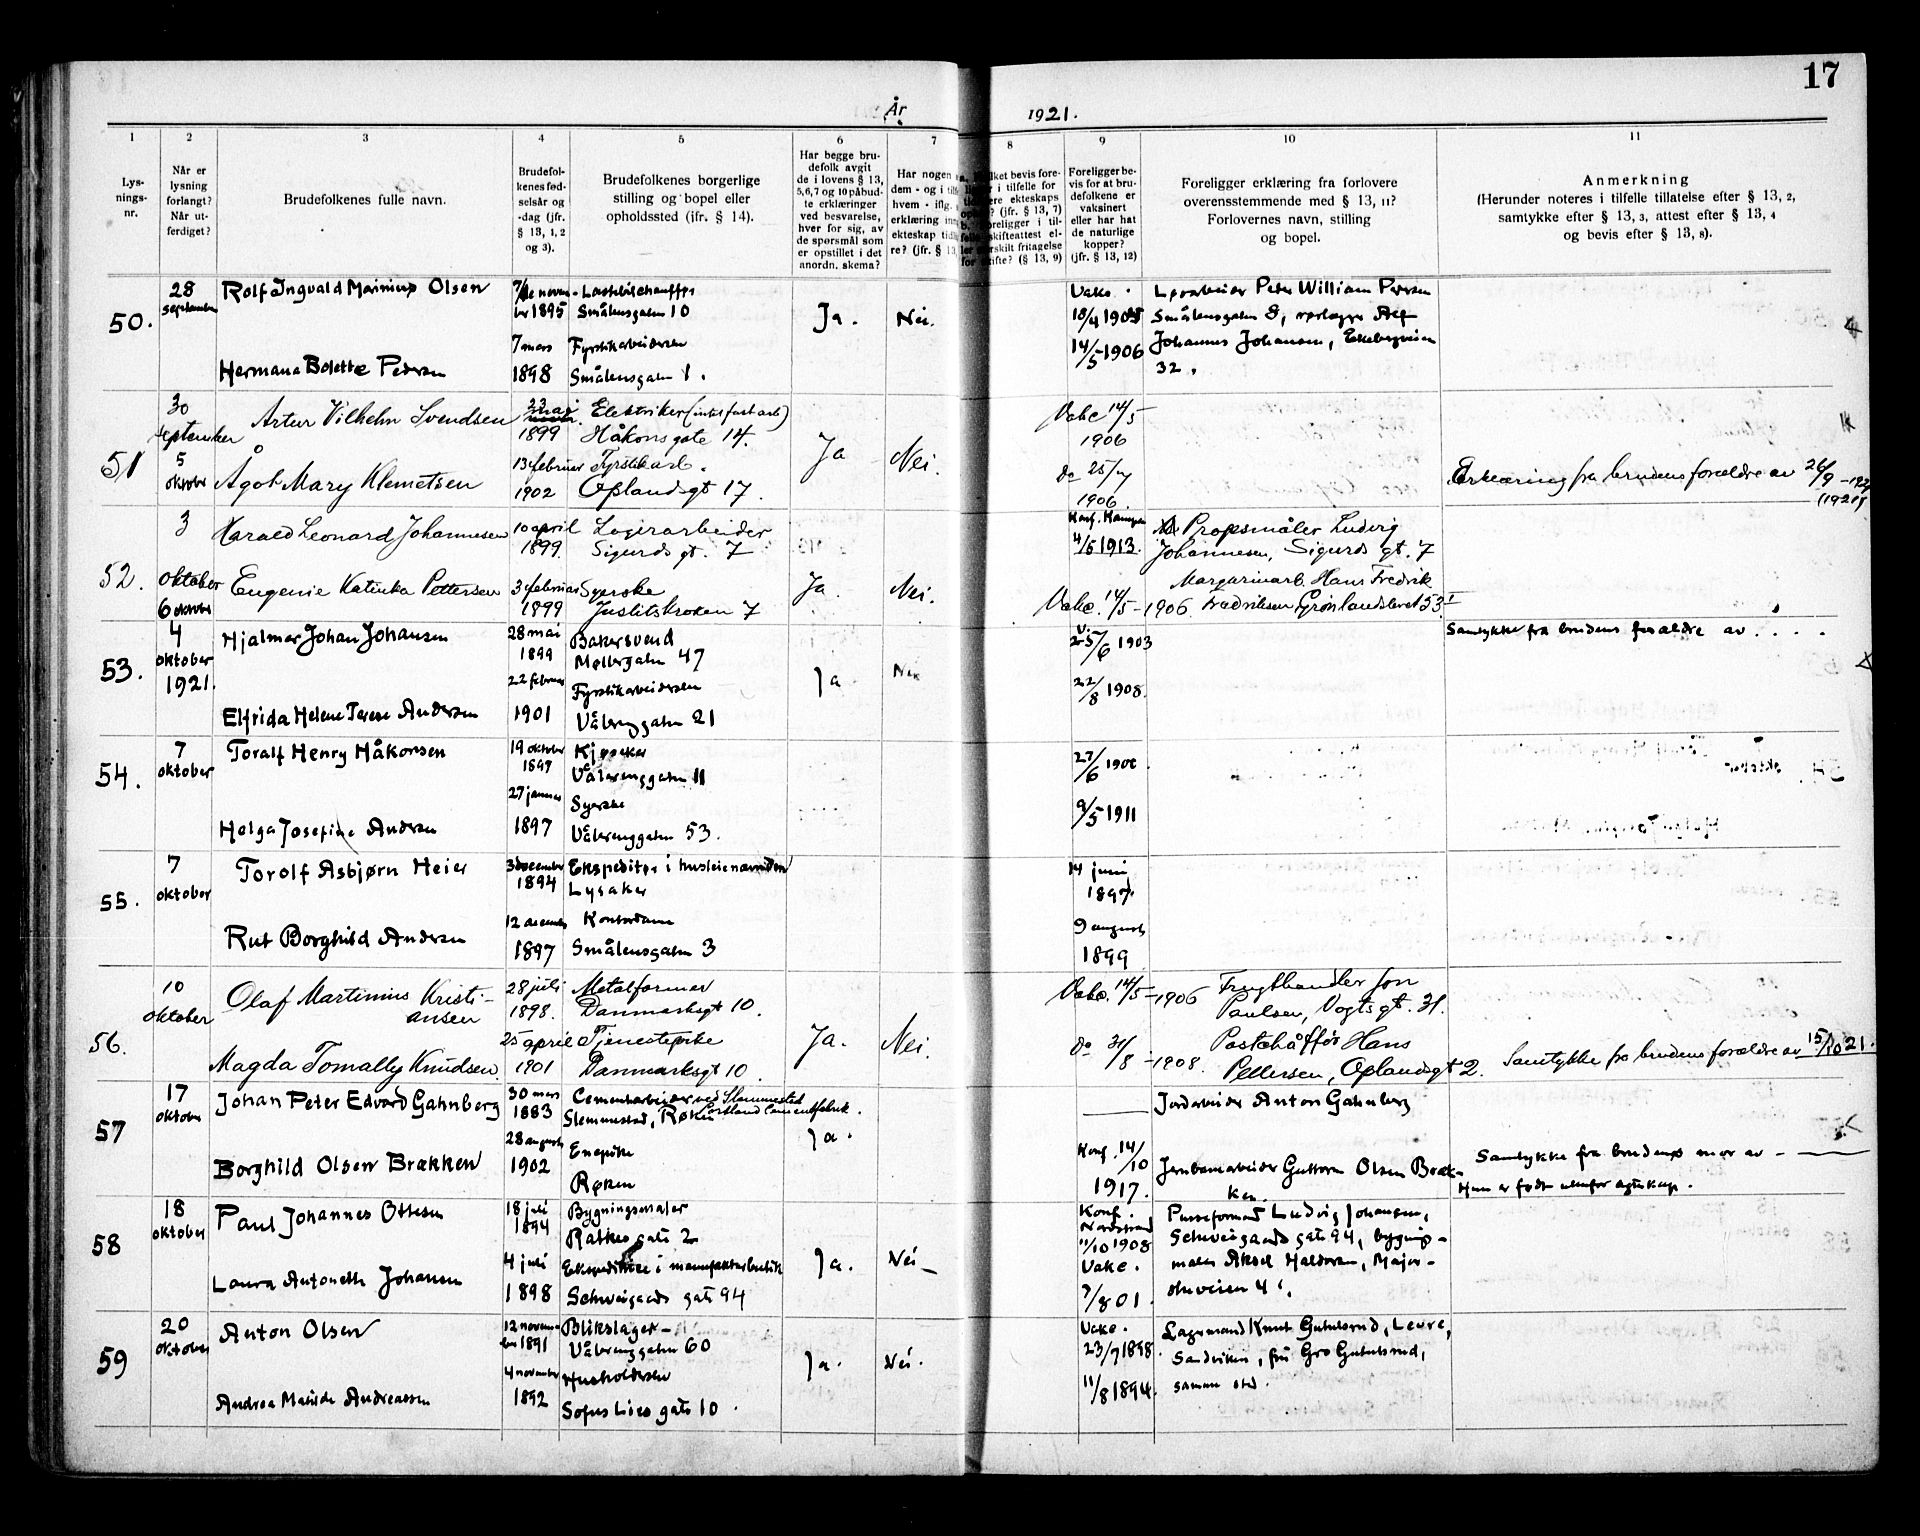 17
År
1921.
1
2
3
4
5
6
7
8
9
10
11
Lys-
nings-
nr.
Når er
lysning
forlangt?
Når ut-
ferdiget?
Brudefolkenes fulle navn.
Brudefol-
kenes fød-
selsår og
-dag (jfr.
§ 13, 1, 2
og 3).
Brudefolkenes borgerlige
stilling og bopel eller
opholdssted (ifr. § 14).
Har begge bru-
defolk avgit
de i lovens § 13,
5,6,7 og 10 påbud-
te erklæringer
ved besvarelse,
hver for sig, av
de spørsmål som
er opstillet i det
anordn. skema?
Har nogen
dem - og i
hvem - iflg.
erklæring
ekteskap
re? (jfr. § 13
bevis fore-
i tilfelle for
ekteskaps
? (jfr. § 13, 7)
foreligger i til-
skifteattest el-
fritagelse
skifte? (§ 13, 9)
Foreligger be-
vis for at bru-
defolkene er
vaksinert
eller har hat
de naturlige
kopper?
(jfr. § 13, 12)
Foreligger erklæring fra forlovere
overensstemmende med § 13, 11?
Forlovernes navn, stilling
og bopel.
Anmerkning
(Herunder noteres i tilfelle tillatelse efter § 13, 2,
samtykke efter § 13, 3, attest efter § 13, 4
og bevis efter § 13, 8).
50.
28
september
Rolf Ingvald Marinius Olsen
1895
Smålensgaten 10
Ja.
Nei.
Vaks.
Peter William Pedersen
Smålensgaten 8,
Johannes Johansen, Ekebergveien
32.
14/5-1906
Hermana Bolette Pedersen
7 mars
1898
Fyrstikarbeiderske
Smålensgaten 1.
51
30
september
5
oktober
Artur Vilhelm Svendsen
23 mai
1899
Elektriker
Håkons gate 14.
Ja
Nei.
Vakc 14/5
1906
Ågot Mary Klemetsen
13 februar
1902
Fyrstikarb.
Oplandsgt 17.
do 25/
1906
Erklæring fra brudens forældre av 26/9
(1921)
52.
3
oktober
6 oktober
Harald Leonard Johannesen
10 april
1899.
Lagerarbeider
Sigurds gt. 7
Ja.
Nei.
Konf. Kampen
4/5 1913.
Propsmåler Ludvig
Johannesen, Sigurds gt. 7
Eugenie Katinka Pettersen
3 februar
1899
Syerske
Justitskroken 7
Vakc. 14/5-1906
Margarinarb. Hans Fredrik
Fredriksen Grønlandsleret 53 I
53.
4
oktober
1921.
Hjalmar Johan Johansen
28 mai
1899
Bakersvend
Møllergaten 47
Ja
Nei
V.
25/6 1903
Samtykke fra brudens forældre av . . . .
Elfrida Helene Terese Andersen
22 februar
1901
Fyrstikarbeiderske
Vålerenggaten 21
22/8 1908.
54.
7
oktober
Toralf Henry Håkonsen
19 oktober
Kjøreker
Vålerenggaten 11
27/6
Helga Josefine Andersen
27 januar
1897
Syerske
Vålerenggaten 53.
9/5 1911
55.
7
oktober
Torolf Asbjørn Heier
3 december
1894
Ekspeditør i husleienævnden
Lysaker
14 juni
1897.
Rut Borghild Andersen
12 december
1897
Kontordame
Smålensgaten 3
9 august
1899
56.
10
oktober
Olaf Martinius Kristi-
ansen
28 juli
1898.
Metalformer
Danmarksgt 10.
Ja.
Nei.
Vakc. 14/5-1906
Frugthandler Jon
Paulsen, Vogtsgt. 31.
Magda Tomally Knudsen.
25 april
1901
Tjenestepike
Danmarksgt 10.
do 31/8-1908.
Hans
Pettersen, Oplandsgt 2.
Samtykke fra brudens forældre av 15/10 21.
57
17
oktober
Johan Peter Edvard Gahnberg
30 mars
1883
Cementarbeider ved Slemmestad
Portland Cementfabrik.
Slemmestad, Røken
Ja.
Jordarbeider Anton Gahnberg
Borghild Olsen Brækken
28 august
1902
Enepike
Røken
Konf. 14/10
1917.
Jernbanearbeider Guttorm Olsen Bræk-
ken.
Samtykke fra brudens mor av
Hun er født utenfor egteskap.
58
18
oktober
Paul Johannes Ottesen
18 juli
1894
Bygningsmaler
Ratkes gate 2
Ja.
Nei
Konf.
Nordstrand
11/10 1908
Ludvig Johansen,
Schweigaards gate 94, bygnings-
maler Aksel Halvorsen, Major-
stuveien 4.
Laura Antonette Johansen
4 juli
1898
Ekspeditrise i manufakturbutik
Schweigaards gate 94
Vakc.
7/8 01.
59
20
oktober
Anton Olsen
12 novem-
ber 1891
Blikslager
Vålerenggaten 60
Ja.
Nei.
Vakc.
23/7 1898.
Lagermand Knut Gutulsrud,
Sandviken, fru Gro Gutulsrud,
samme sted.
Andrea Matilde Andreassen
4 november
1892
Husholderske
Sofus Lies gate 10.
11/8 1894.